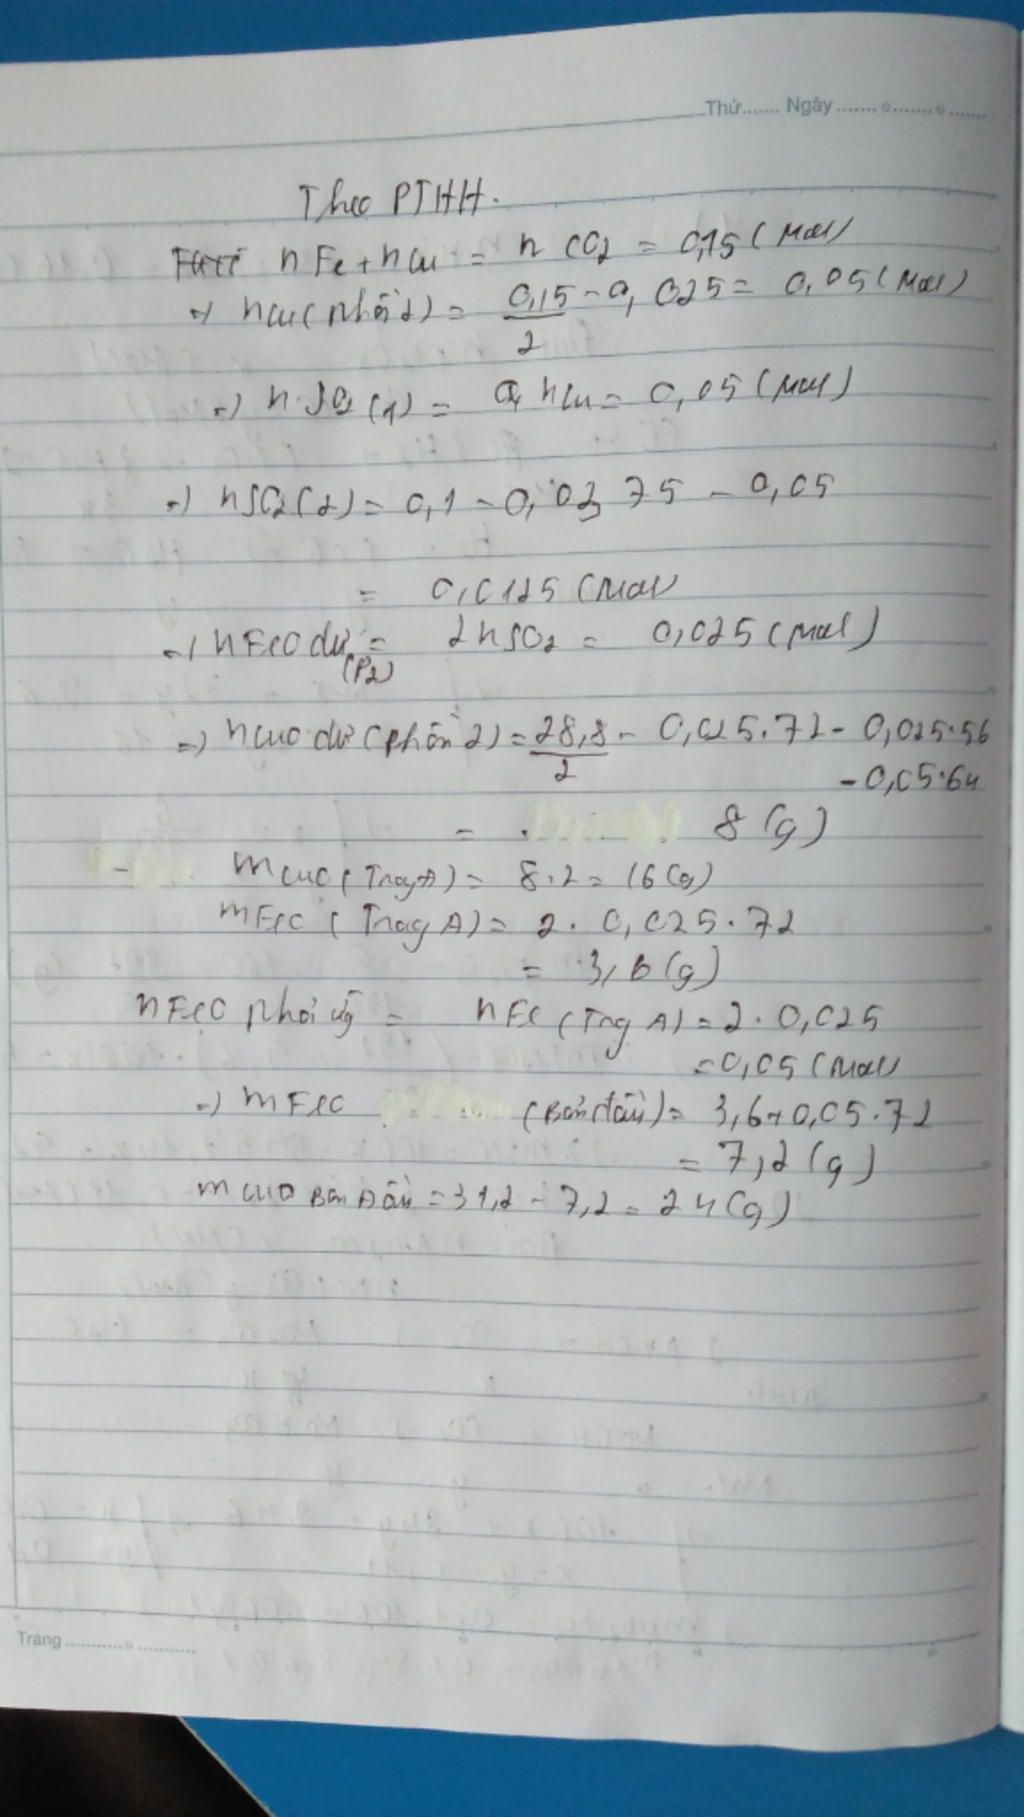 Thứ....... Ngày ....................
Theo PTHH.
nFe + nCu = n CO2 = 0,15 (Mol)
=> nCu (phần 2) = 0,15/2 - 0,025 = 0,05 (Mol)
=> nSO2 (1) = nCu = 0,05 (Mol)
=> nSO2 (2) = 0,1 - 0,0375 - 0,05
= 0,0125 (Mol)
=> nFeO dư (P2) = 2nSO2 = 0,025 (Mol)
=> nCuO dư (phần 2) = 28,8/2 - 0,025.72 - 0,025.56
- 0,05.64
= 8 (g)
mCuO (Trong A) = 8.2 = 16 (g)
mFeO (Trong A) = 2. 0,025.72
= 3,6 (g)
nFeO phải ứg = nFe (Trog A) = 2. 0,025
= 0,05 (Mol)
=> mFeO (Ban đầu) = 3,6 + 0,05.72
= 7,2 (g)
mCuO Ban Đầu = 31,2 - 7,2 = 24 (g)
Trang......................